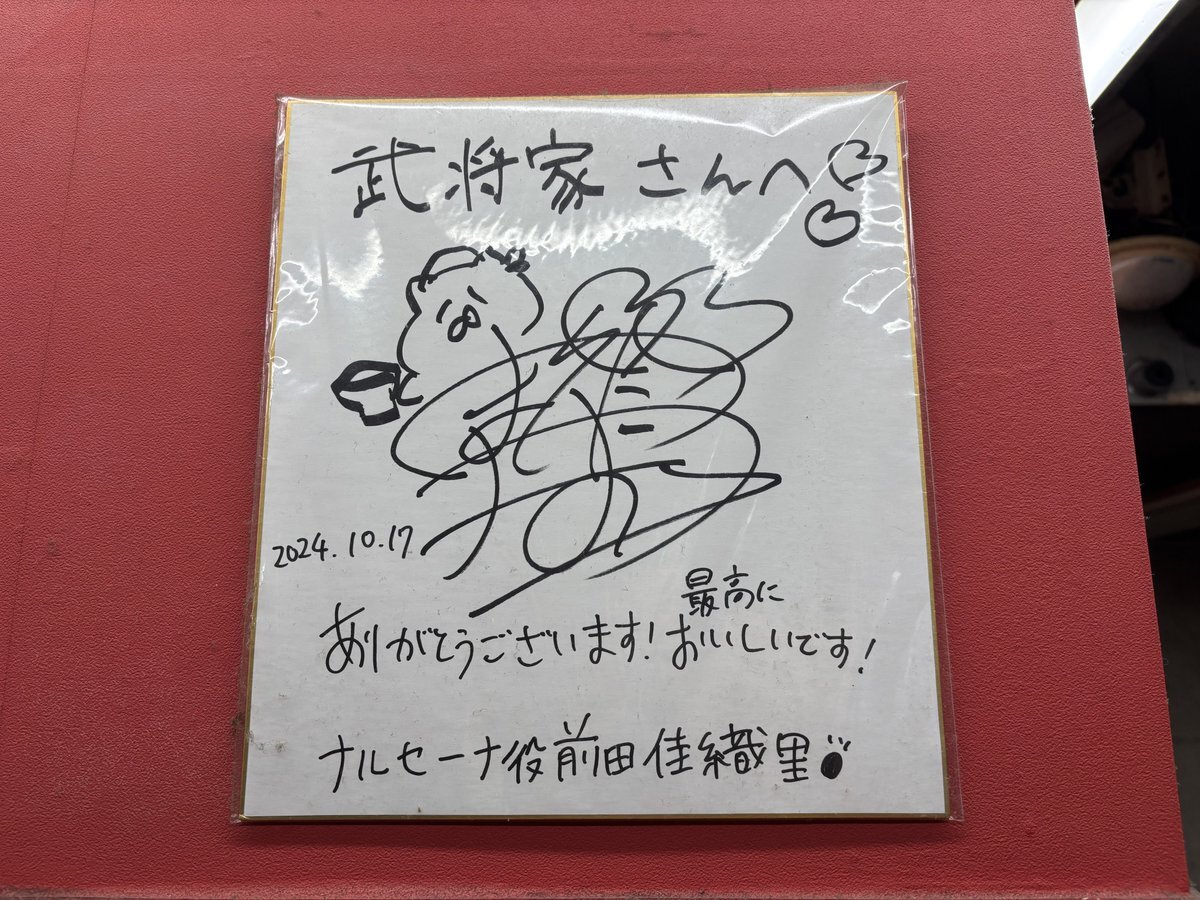 武将家 さんへ
2024.10.17
最高に
ありがとうございます！おいしいです！
ナルセーナ役前田佳織里